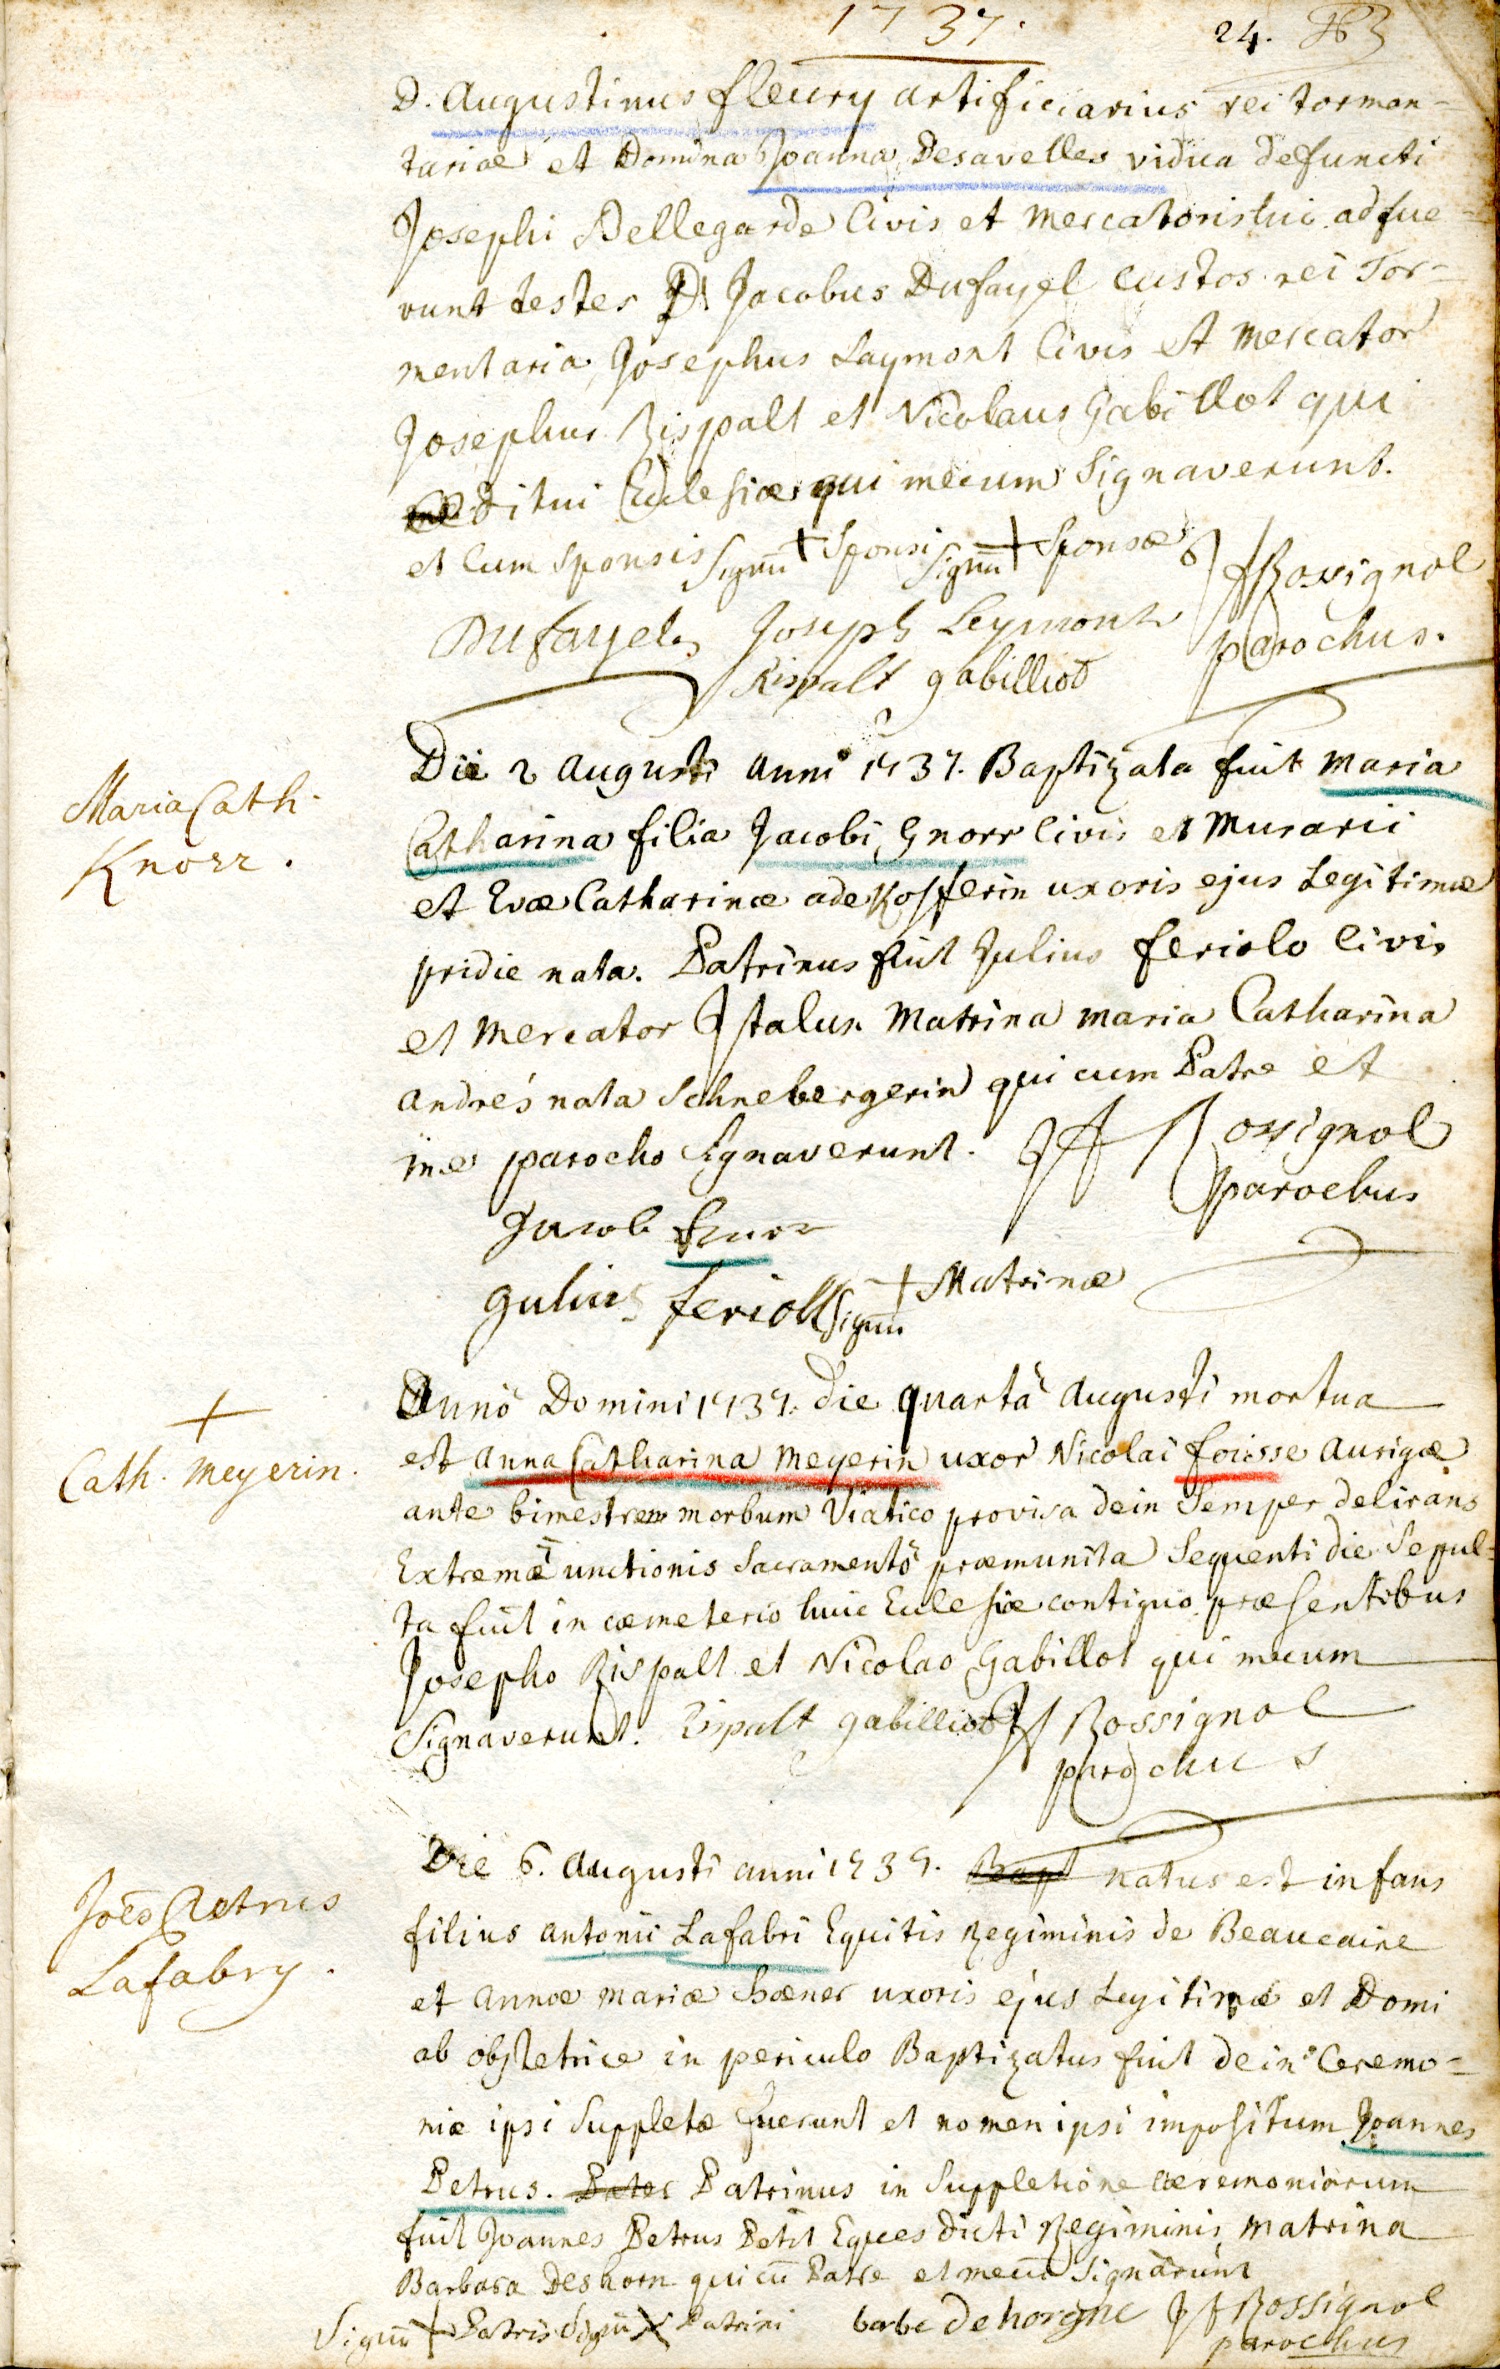 1737.
24.
D. Augustinus fleury artificiarius rei tormen-
tariae et Domina Joanna Desavelles vidua defuncti
Josephi Dellegarde Civis et Mercatoris hui. adfue-
runt testes D. Jacobus Dufayel Custos rei Tor-
mentaria, Josephus Laymont Civis et Mercator
Josephus Rispalt et Nicolaus Gabillot qui
aeditui Ecclesiae qui mecum Signaverunt.
et Cum Sponsis Signū + Sponsi Signū + Sponsae
Rossignol
parochus.
Dufayel Joseph Leymont
Rispalt gabilliod
Maria Cath.
Knorr.
Die 2 Augusti Anni 1737. Baptizata fuit Maria
Catharina filia Jacobi Gnorr Civis et Murarii
et Evae Catharinae uxoris ejus Legitimae
pridie nata. Patrinus fuit Julius feriolo Civis
et Mercator Italus. Matrina Maria Catharina
Andrés nata Schnebergerin qui cum Patre et
me parocho Signaverunt. Rossignol
parochus
Jacob
Julius feriolli Signū + Matrinae
+
Cath. Meyerin.
Anno Domini 1737. die quartâ Augusti mortua
est Anna Catharina Meyerin uxor Nicolai foisse Aurigae
ante bimestrem morbum Viatico provisa dein Semper delirans
Extremae unctionis Sacramento praemunita Sequenti die Sepul-
ta fuit in caemeterio huic Ecclesiae contiguo praesentibus
Josepho Rispalt et Nicolao Gabillot qui mecum
Signaverunt. Rispalt gabilliod Rossignol
parochus
Joēs Petrus
Lafabry.
Die 6. Augusti anni 1737. Bapt natus est infans
filius Antonii Lafabri Equitis Regiminis de Beaucaire
et Annae Mariae uxoris ejus Legitimae et Domi
ab obstetrice in periculo Baptizatus fuit dein Ceremo-
niae ipsi Suppletae fuerunt et nomen ipsi impositum Joannes
Petrus. Pater Patrinus in Suppletione Caeremoniarum
fuit Joannes Petrus Petit Eques dicti Regiminis, Matrina
Barbara Deshorn qui cū Patre et mecū Signarunt
Signū + Patris Signū X Patrini barbe dehorgne Rossignol
parochus